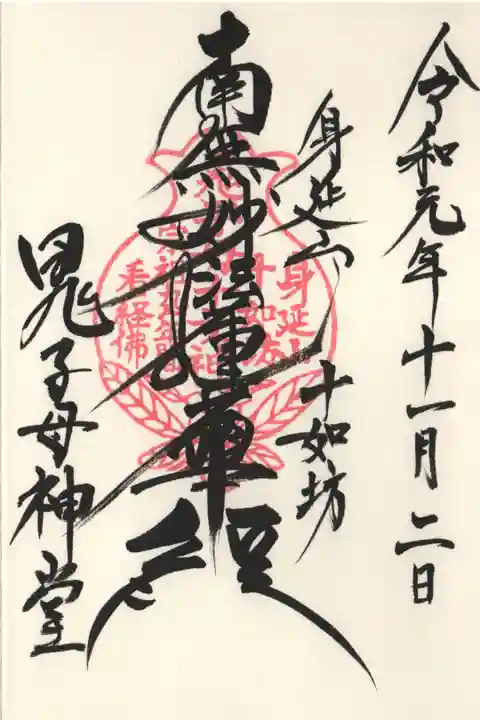 令和元年十一月二日
身延山
十如坊
南無妙法蓮華経
鬼子母神堂
身延山
十如坊
奉経佛